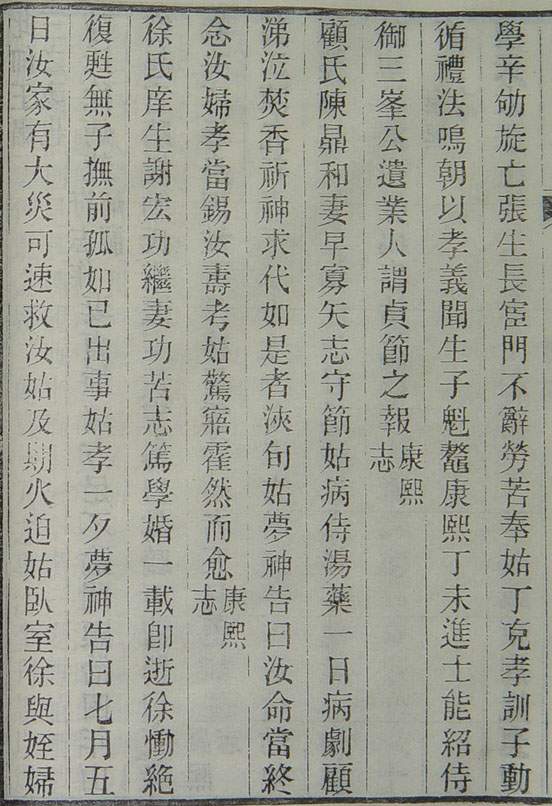 學辛劬旋亡張生長宦門不辭勞苦奉姑丁克孝訓子動
循禮法鳴朝以孝義聞生子魁鼇康熙丁未進士能紹侍
御三峯公遺業人謂貞節之報康熙志
顧氏陳鼎和妻早寡矢志守節姑病侍湯藥一日病劇顧
涕泣焚香祈神求代如是者浹旬姑夢神告曰汝命當終
念汝婦孝當錫汝壽考姑驚寤霍然而愈康熙志
徐氏庠生謝宏功繼妻功苦志篤學婚一載卽逝徐慟絶
復甦無子撫前孤如已出事姑孝一夕夢神告曰七月五
日汝家有大災可速救汝姑及期火迫姑臥室徐與姪婦